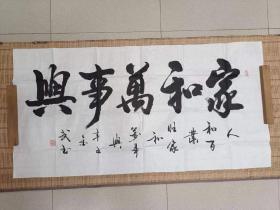 家和萬事興
人
和百
業
旺家
和
萬事
興